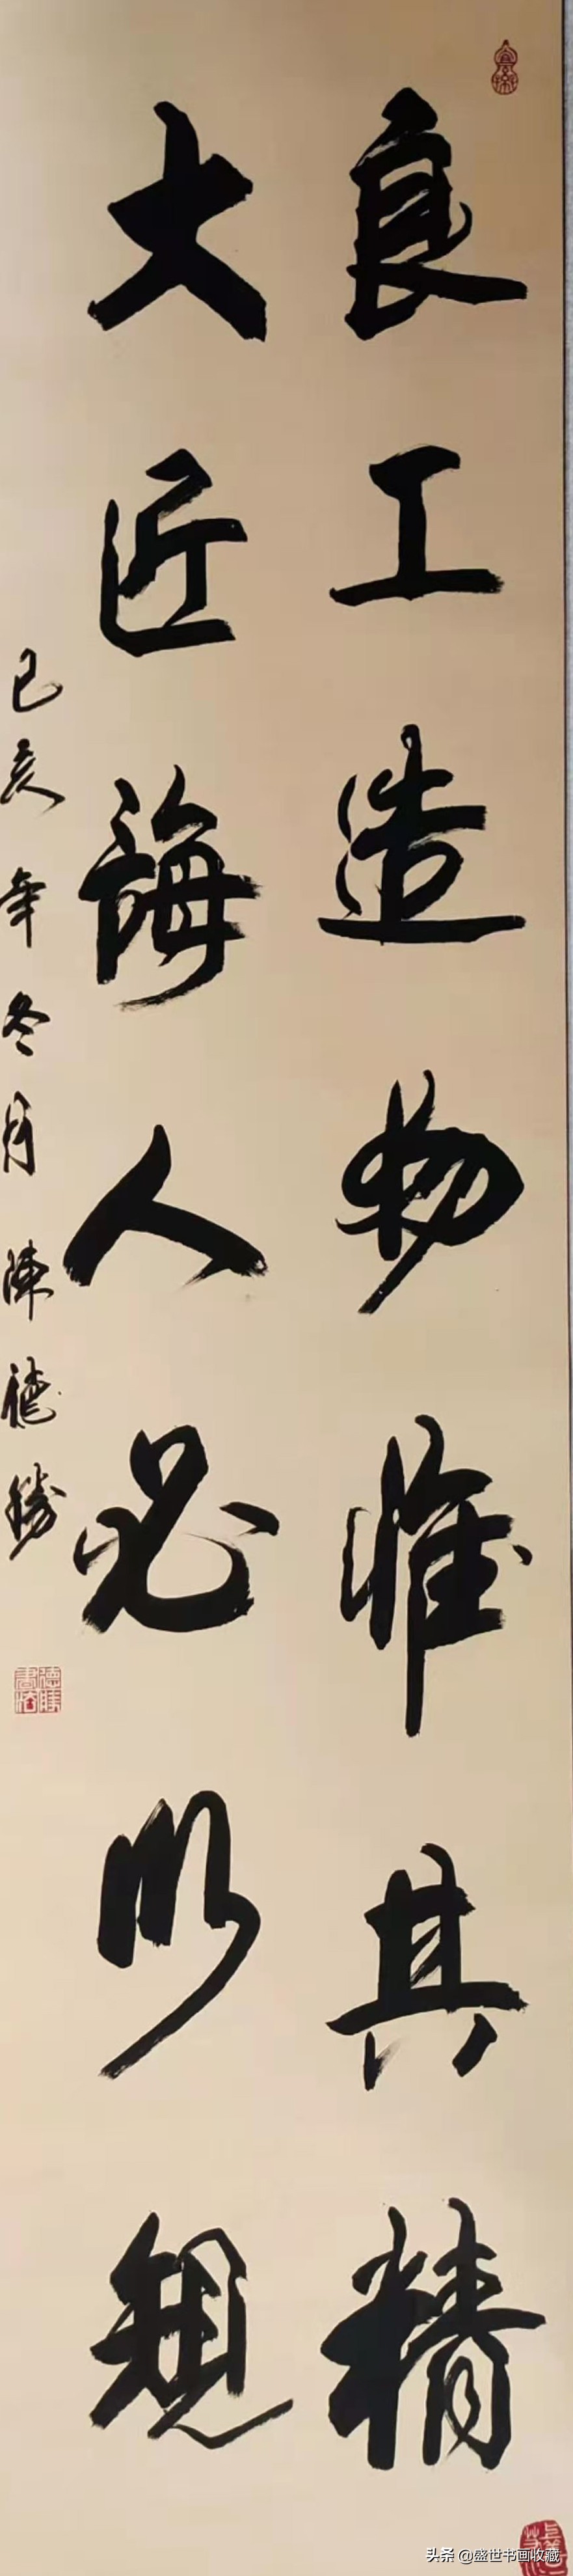 良工造物惟其精
大匠誨人必以規
己亥年冬月陳德勝
头条 @盛世书画收藏